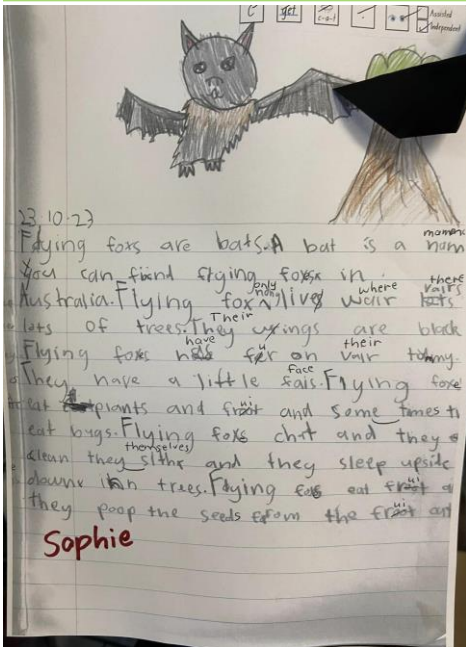 c get c-a-t . Assisted
Independent
23.10.23
Flying foxs are bats. A bat is a mam
You can find flying foxs in
Australia. Flying fox only live where wair there vairs
lots of trees. They Their wings are black
Flying foxs have fur on their vair tummy.
They have a little face fais. Flying foxe
eat plants and froot ui and some times th
eat bugs. Flying foxs chit and they
clean they slthr themselves and they sleep upside
down in trees. Flying foxs eat froot ui a
they poop the seeds from the froot ui and
Sophie